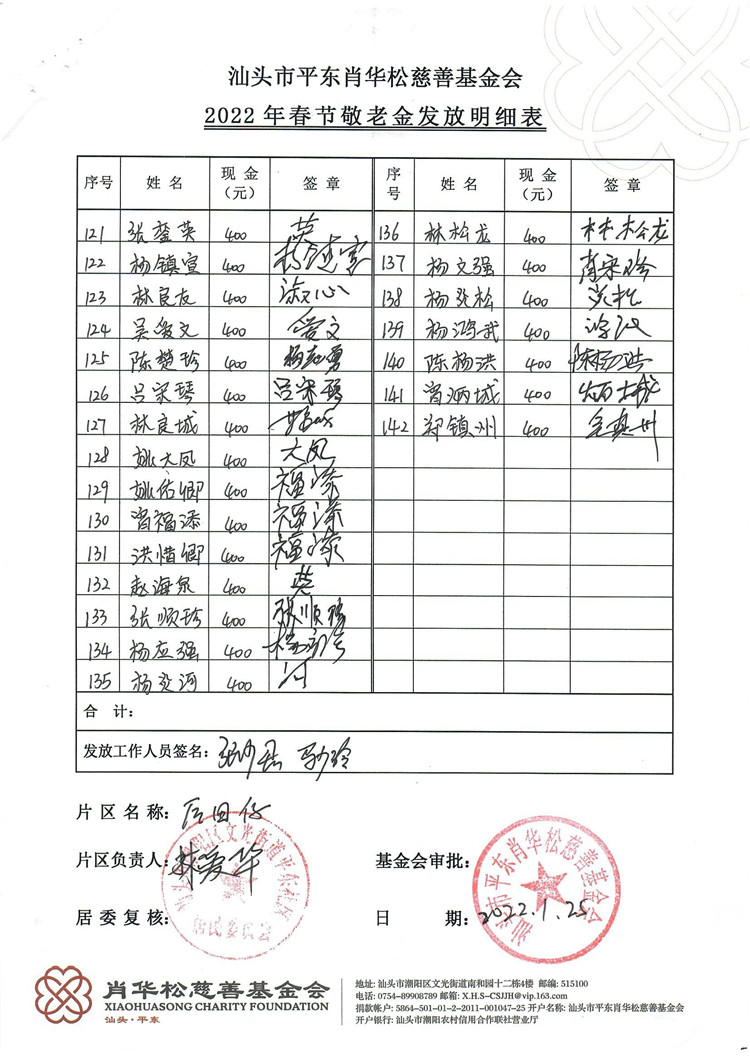 汕头市平东肖华松慈善基金会
2022年春节敬老金发放明细表
序号 姓名 现金(元) 签章 序号 姓名 现金(元) 签章
121 张蓥英 400 英 136 林松龙 400 林松龙
122 杨镇宣 400 137 杨文强 400
123 林良友 400 138 杨炎松 400 炎松
124 吴爱文 400 爱文 139 杨鸿武 400 鸿武
125 陈楚珍 400 140 陈杨洪 400 陈杨洪
126 吕宋琴 400 吕宋琴 141 肖炳城 400 炳城
127 林良城 400 142 郑镇州 400
128 姚大凤 400 大凤
129 姚佑卿 400 福添
130 肖福添 400 福添
131 洪惜卿 400 福添
132 赵海泉 400
133 张顺珍 400 张顺珍
134 杨应强 400
135 杨炎河 400 河
合计:
发放工作人员签名:
片区名称:
片区负责人: 林爱华 基金会审批:
居委复核: 日期: 2022.1.25
汕头市潮阳区文光街道平东社区
居民委员会
汕头市平东肖华松慈善基金会
肖华松慈善基金会
XIAOHUASONG CHARITY FOUNDATION
汕头·平东
地址: 汕头市潮阳区文光街道南和园十二栋4楼 邮编: 515100
电话: 0754-89908789 邮箱: X.H.S-CSJJH@vip.163.com
捐款帐户: 5864-501-01-2-2011-001047-25 开户名称: 汕头市平东肖华松慈善基金会
开户银行: 汕头市潮阳农村信用合作联社营业厅